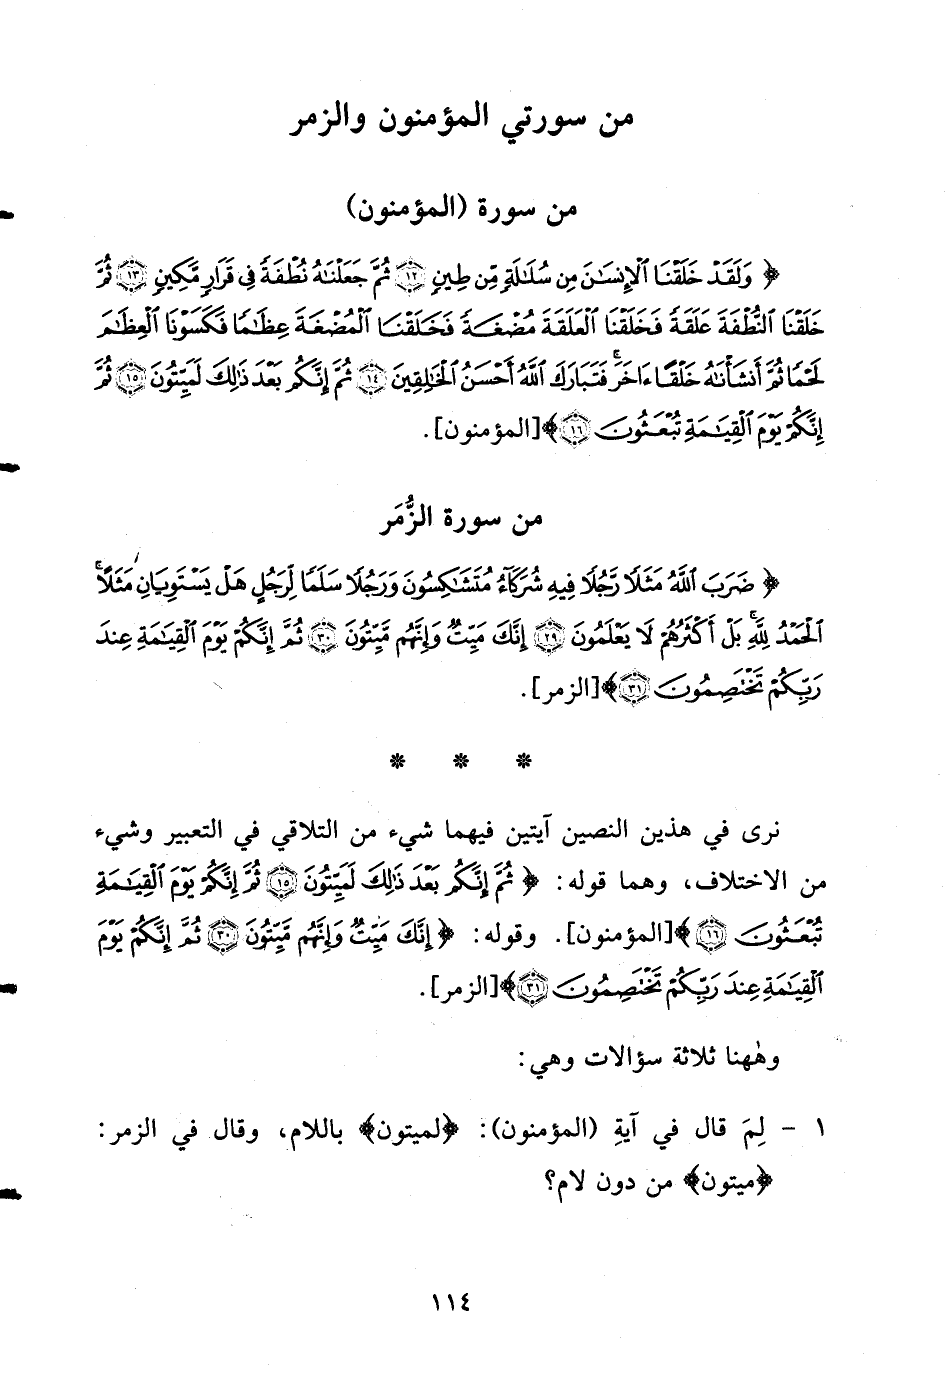 من سورتي المؤمنون والزمر
من سورة (المؤمنون)
﴿ وَلَقَدْ خَلَقْنَا ٱلْإِنسَٰنَ مِن سُلَٰلَةٍ مِّن طِينٍ ١٢ ثُمَّ جَعَلْنَٰهُ نُطْفَةً فِي قَرَارٍ مَّكِينٍ ١٣ ثُمَّ
خَلَقْنَا ٱلنُّطْفَةَ عَلَقَةً فَخَلَقْنَا ٱلْعَلَقَةَ مُضْغَةً فَخَلَقْنَا ٱلْمُضْغَةَ عِظَٰمًا فَكَسَوْنَا ٱلْعِظَٰمَ
لَحْمًا ثُمَّ أَنشَأْنَٰهُ خَلْقًا ءَاخَرَ ۚ فَتَبَارَكَ ٱللَّهُ أَحْسَنُ ٱلْخَٰلِقِينَ ١٤ ثُمَّ إِنَّكُم بَعْدَ ذَٰلِكَ لَمَيِّتُونَ ١٥ ثُمَّ
إِنَّكُمْ يَوْمَ ٱلْقِيَٰمَةِ تُبْعَثُونَ ١٦ ﴾ [المؤمنون].
من سورة الزُّمَر
﴿ ضَرَبَ ٱللَّهُ مَثَلًا رَّجُلًا فِيهِ شُرَكَآءُ مُتَشَٰكِسُونَ وَرَجُلًا سَلَمًا لِّرَجُلٍ هَلْ يَسْتَوِيَانِ مَثَلًا ۚ
ٱلْحَمْدُ لِلَّهِ ۚ بَلْ أَكْثَرُهُمْ لَا يَعْلَمُونَ ٢٩ إِنَّكَ مَيِّتٌ وَإِنَّهُم مَّيِّتُونَ ٣٠ ثُمَّ إِنَّكُمْ يَوْمَ ٱلْقِيَٰمَةِ عِندَ
رَبِّكُمْ تَخْتَصِمُونَ ٣١ ﴾ [الزمر].
* * *
نرى في هذين النصين آيتين فيهما شيء من التلاقي في التعبير وشيء
من الاختلاف، وهما قوله: ﴿ ثُمَّ إِنَّكُم بَعْدَ ذَٰلِكَ لَمَيِّتُونَ ١٥ ثُمَّ إِنَّكُمْ يَوْمَ ٱلْقِيَٰمَةِ
تُبْعَثُونَ ١٦ ﴾ [المؤمنون]. وقوله: ﴿ إِنَّكَ مَيِّتٌ وَإِنَّهُم مَّيِّتُونَ ٣٠ ثُمَّ إِنَّكُمْ يَوْمَ
ٱلْقِيَٰمَةِ عِندَ رَبِّكُمْ تَخْتَصِمُونَ ٣١ ﴾ [الزمر].
وهٰهنا ثلاثة سؤالات وهي:
١ - لِمَ قال في آيةِ (المؤمنون): ﴿لميتون﴾ باللام، وقال في الزمر:
﴿ميتون﴾ من دون لام؟
١١٤